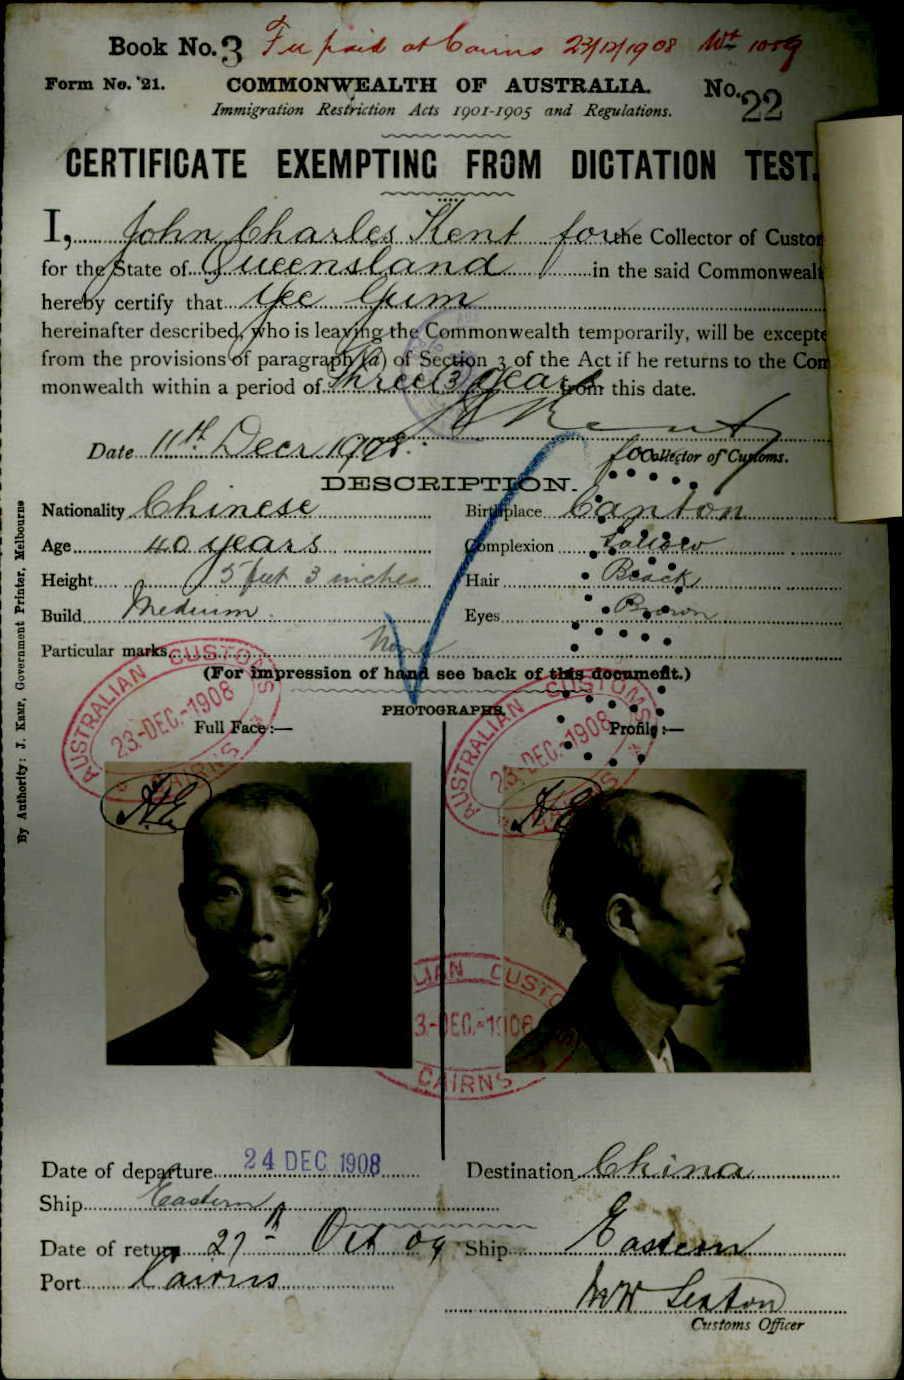 Book No. 3 Fee paid at Cairns 23/12/1908
Form No. 21. COMMONWEALTH OF AUSTRALIA. No. 22
Immigration Restriction Acts 1901-1905 and Regulations.
CERTIFICATE EXEMPTING FROM DICTATION TEST.
I, John Charles Kent for the Collector of Custom
for the State of Queensland in the said Commonwealt
hereby certify that Yee Gum
hereinafter described, who is leaving the Commonwealth temporarily, will be excepte
from the provisions of paragraph (a) of Section 3 of the Act if he returns to the Com
monwealth within a period of three (3) years from this date.
Kent
Date 11th Decr 1908. for Collector of Customs.
DESCRIPTION.
Nationality Chinese Birthplace Canton
Age 40 years Complexion Sallow
Height 5 feet 3 inches Hair Black
Build Medium Eyes Brown
Particular marks None
(For impression of hand see back of this document.)
PHOTOGRAPHS.
Full Face:— Profile:—
AUSTRALIAN CUSTOMS
23.-DEC.-1908
CAIRNS
AUSTRALIAN CUSTOMS
23.-DEC.-1908
CAIRNS
LIAN CUSTO
3.-DEC.-1908
CAIRNS
Date of departure 24 DEC 1908 Destination China
Ship Eastern
Date of return 27th Oct 09 Ship Eastern
Port Cairns
Customs Officer
By Authority: J. Kemp, Government Printer, Melbourne